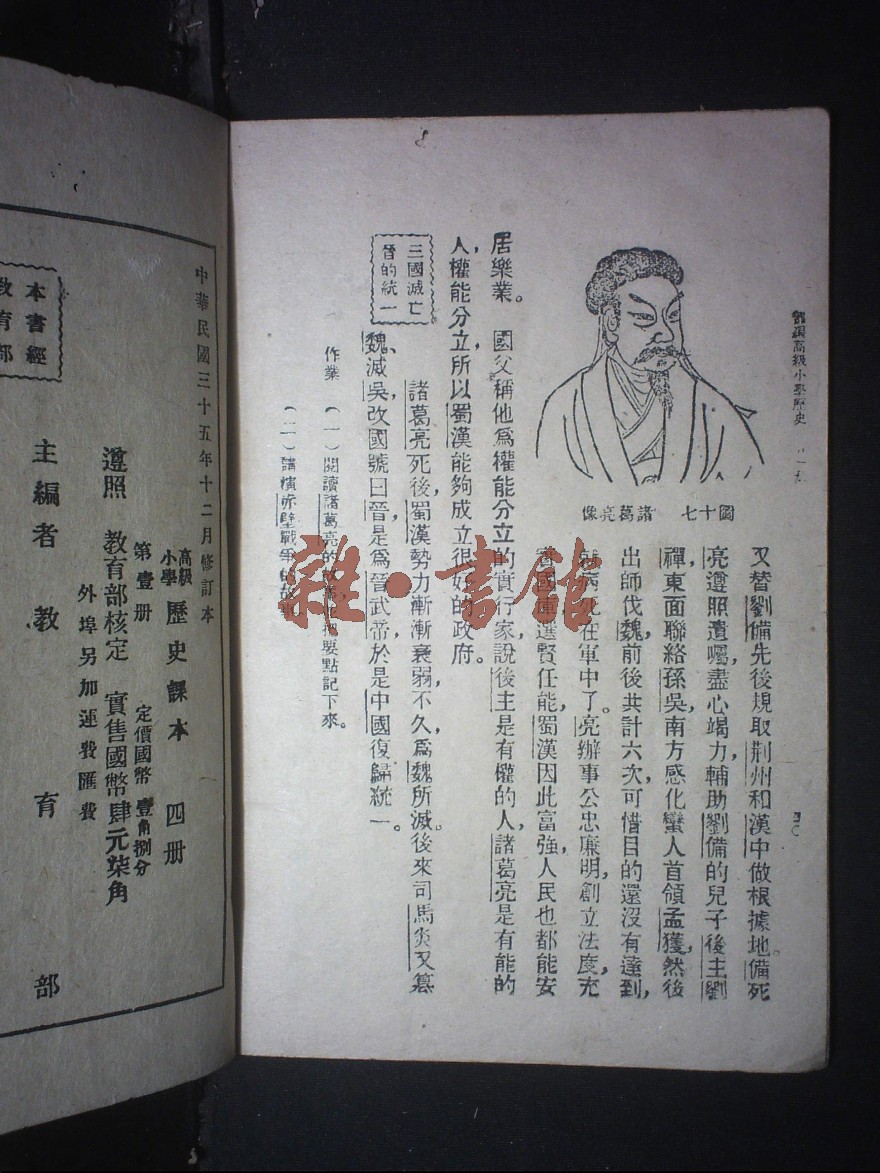 高級小學歷史
圖十七 諸葛亮像
又替劉備先後規取荆州和漢中做根據地。備死
亮遵照遺囑,盡心竭力,輔助劉備的兒子後主劉
禪,東面聯絡孫吳,南方感化蠻人首領孟獲,然後
出師伐魏,前後共計六次,可惜目的還沒有達到,
病死在軍中了。亮辦事公忠廉明,創立法度,充
實國庫,選賢任能,蜀漢因此富強,人民也都能安
居樂業。 國父稱他爲權能分立的實行家,說後主是有權的人,諸葛亮是有能的
人,權能分立,所以蜀漢能夠成立很好的政府。
三國滅亡
晉的統一
諸葛亮死後,蜀漢勢力漸漸衰弱,不久,爲魏所滅。後來司馬炎又篡
魏、滅吳,改國號曰晉,是爲晉武帝,於是中國復歸統一。
作業 (一)閱讀諸葛亮的 把要點記下來。
(二)講演赤壁戰爭的故
中華民國三十五年十二月修訂本
高級小學 歷史課本 四册
第壹册 定價國幣壹角捌分
遵照 教育部核定 實售國幣肆元柒角
外埠另加運費匯費
主編者 教育部
本書經
教育部
雜·書館